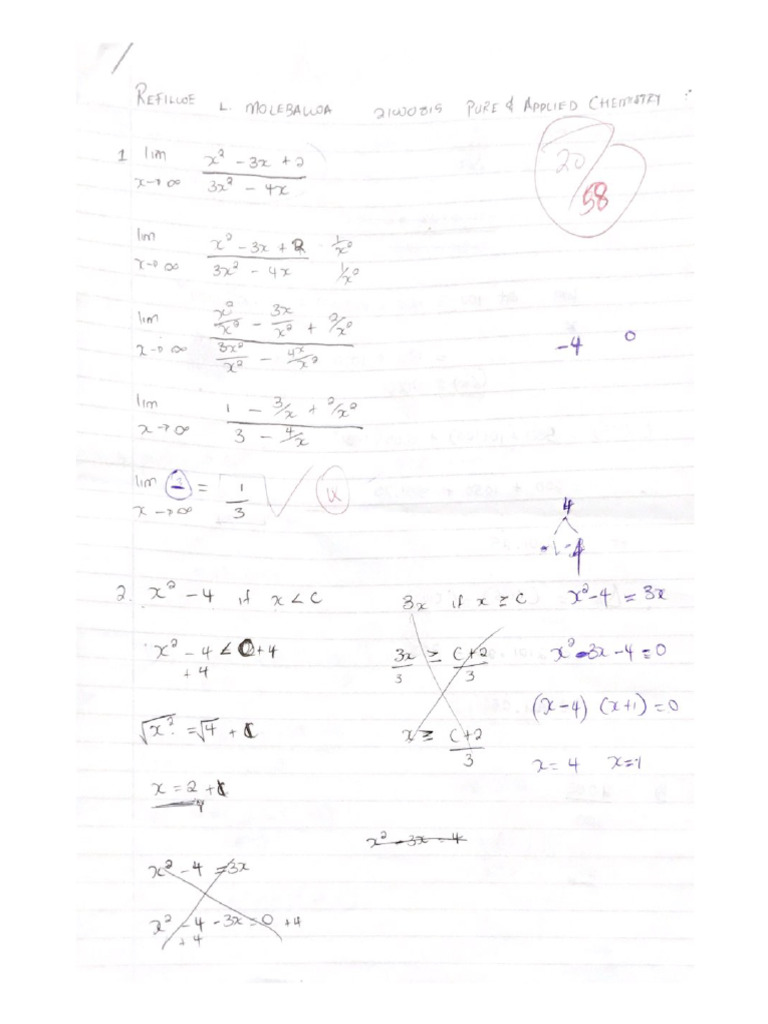 REFILWE L. MOLEBALWA 21W0815 PURE & APPLIED CHEMISTRY
20/58
1 lim x→∞ (x² - 3x + 2)/(3x² - 4x)
lim x→∞ (x² - 3x + 2)/(3x² - 4x) · (1/x²)/(1/x²)
lim x→∞ (x²/x² - 3x/x² + 2/x²)/(3x²/x² - 4x/x²)
-4 0
lim x→∞ (1 - 3/x + 2/x²)/(3 - 4/x)
lim x→∞ = 1/3 ✓
4
2. x² - 4 if x < C 3x if x ≥ C x² - 4 = 3x
x² - 4 < +4 3x/3 ≥ (C+2)/3 x² - 3x - 4 = 0
+4
√x² = √4 + x ≥ (C+2)/3 (x-4) (x+1) = 0
x = 2 + x = 4 x = -1
x² - 3x = 4
x² - 4 = 3x
x² - 4 - 3x = 0 + 4
+4